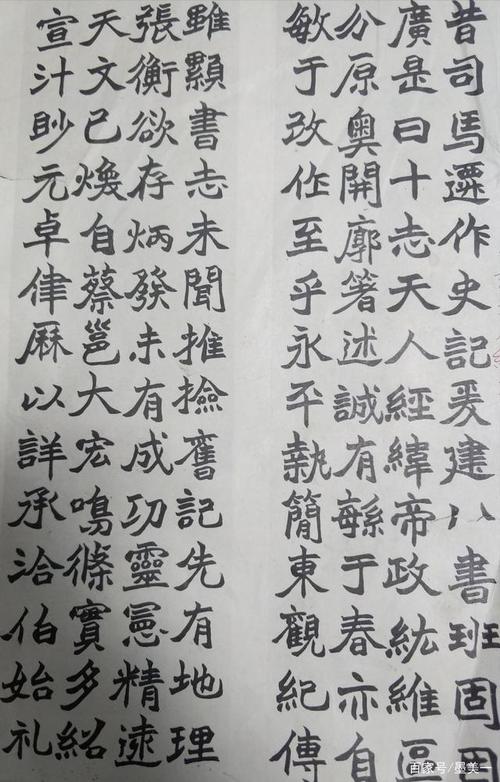 昔司馬遷作史記爰建八書班固
廣是曰十志天人經緯帝政紘維區
分原奧開廓箸述誠有緐于春亦自
敏于改作至乎永平執簡東觀紀傳
雖顯書志未聞推撿舊記先有地理
張衡欲存炳發未有成功靈憲精遠
天文已煥自蔡邕大宏鳴條實多紹
宣汁眇元卓律厤以詳承洽伯始礼
百家号/墨美一